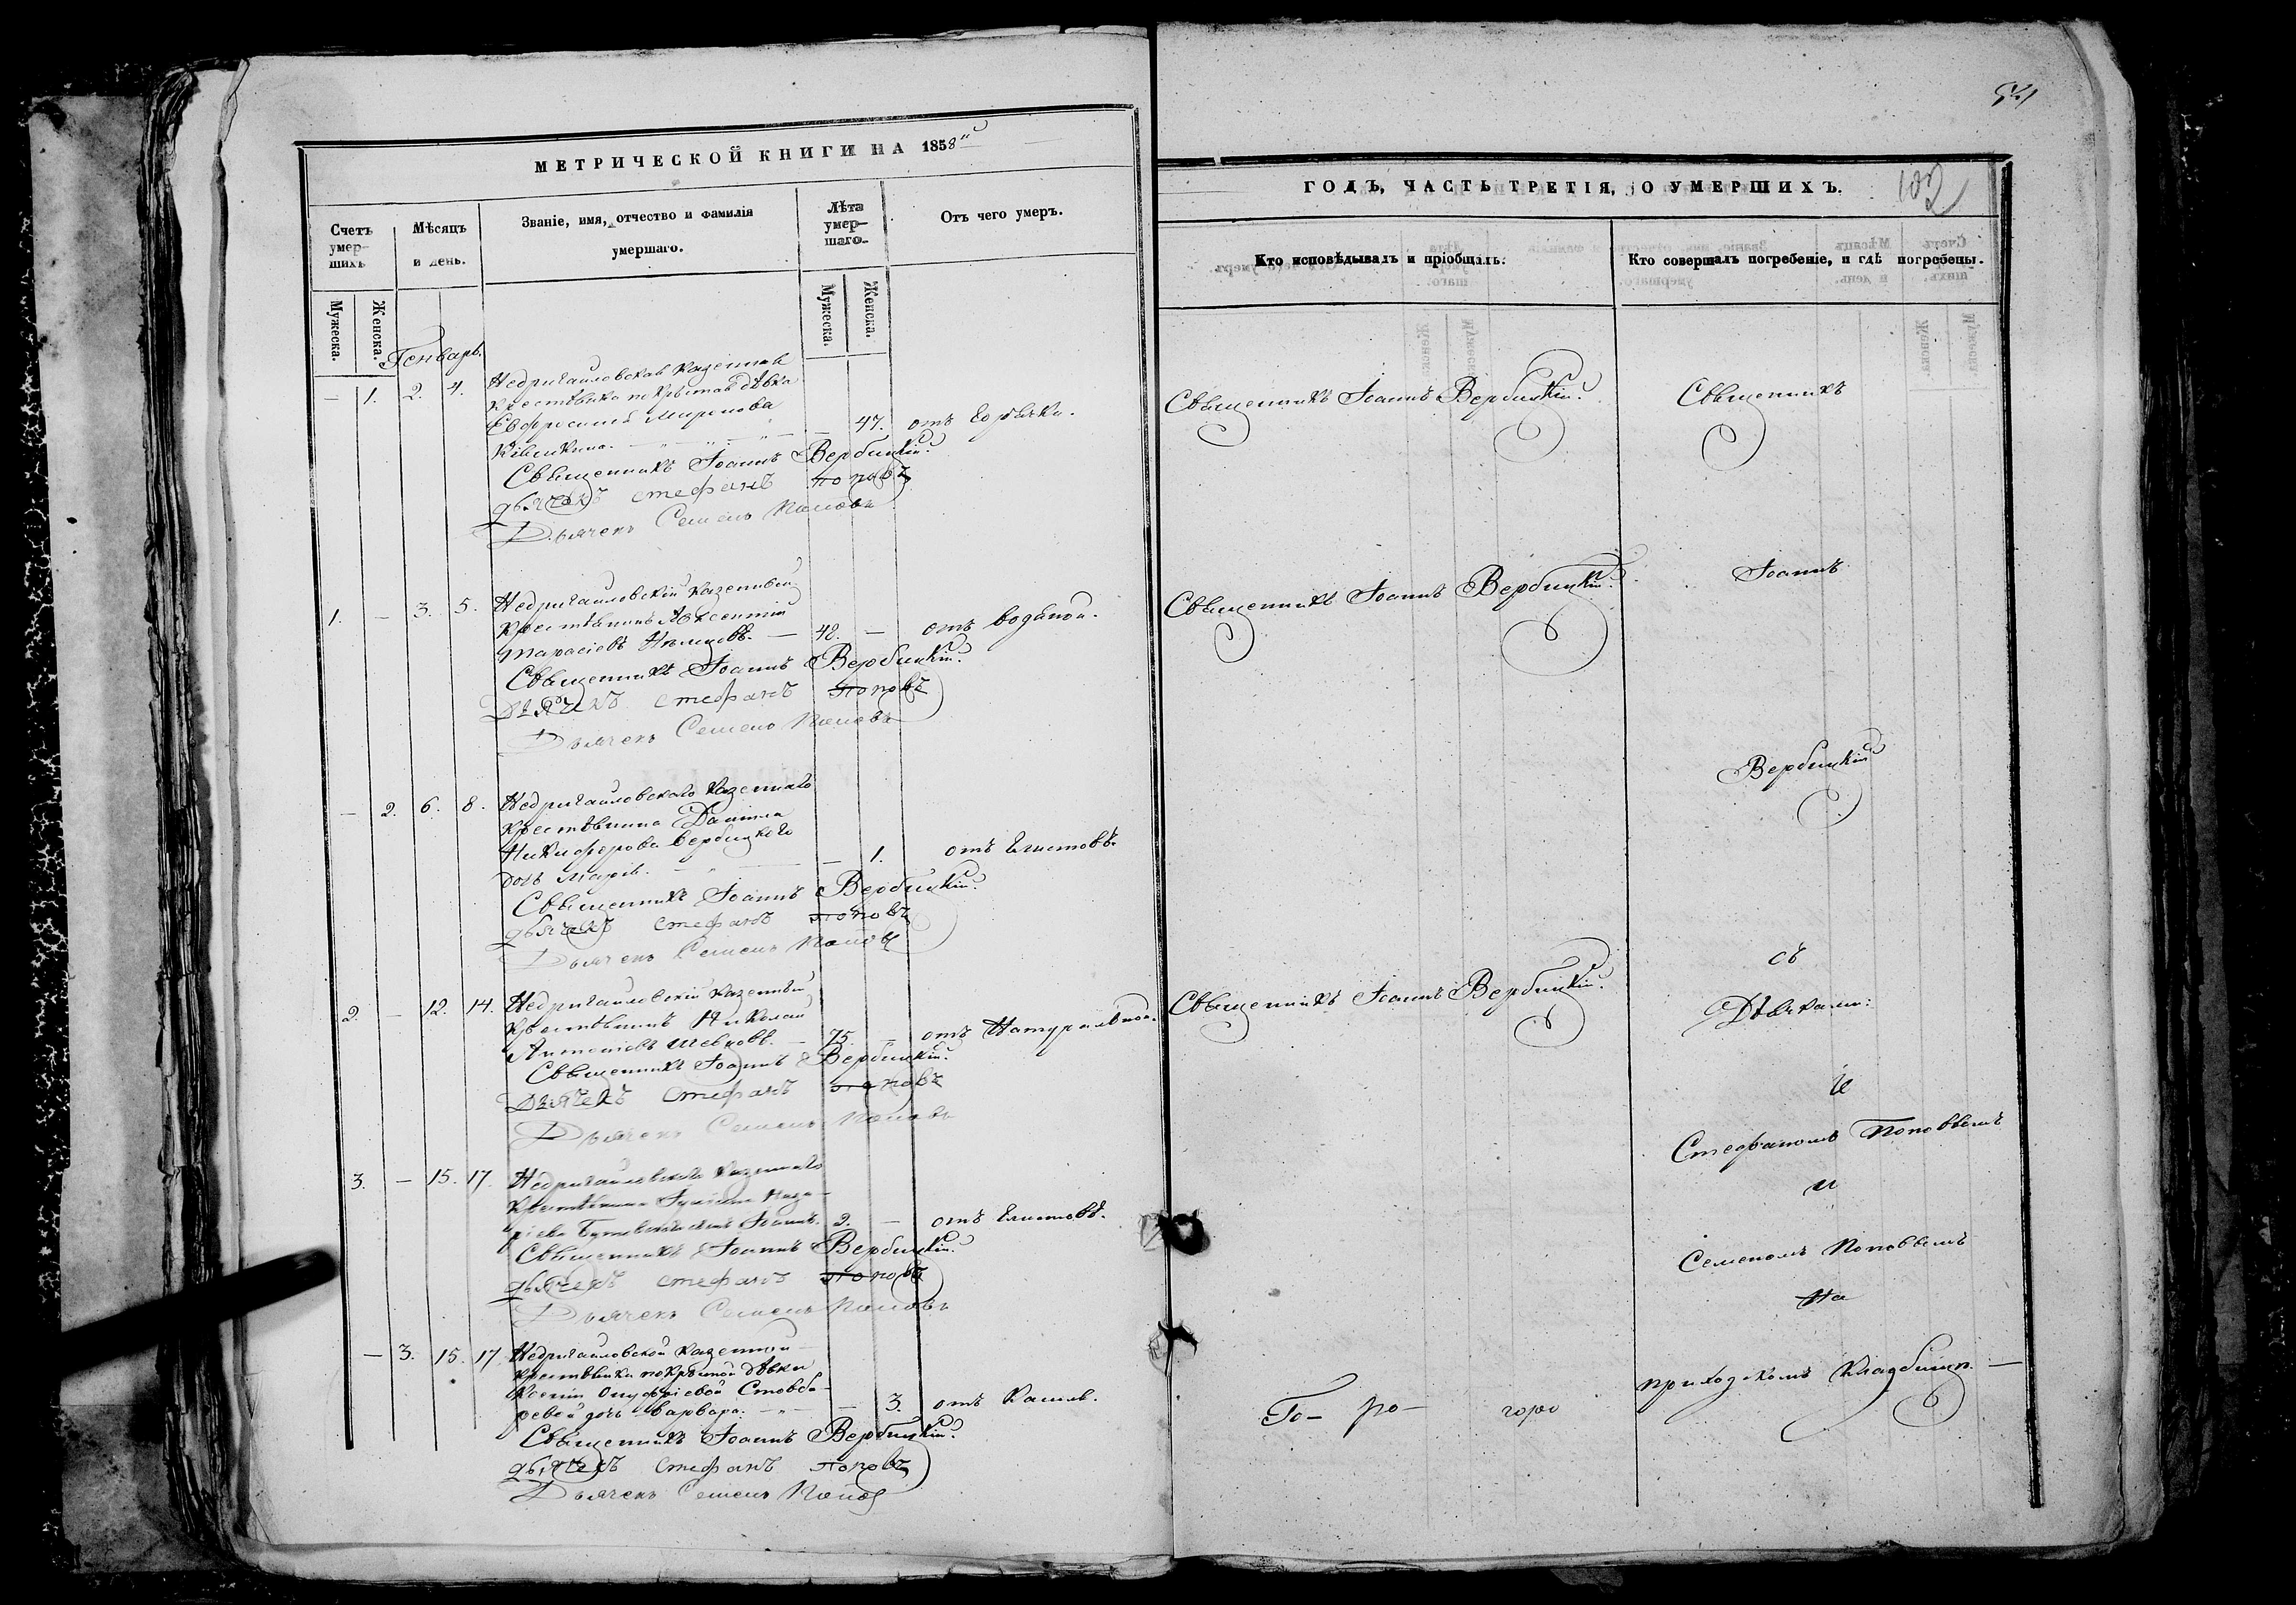 МЕТРИЧЕСКОЙ КНИГИ НА 1858й
Счетъ умер-шихъ
Мѣсяцъ и день.
Званіе, имя, отчество и фамилія умершаго.
Лѣта умер-шаго.
Отъ чего умеръ.
Мужеска.
Женска.
Мужеска.
Женска.
Генварь.
— 1. 2. 4. Недригайловская казенная
крестьянка покрытая дѣвка
Евфросинія Миронова
— 47. отъ горячки.
Священникъ Іоаннъ Вербицкій.
дьячекъ стефанъ поповъ
Дьячекъ Семенъ Поповъ
1. — 3. 5. Недригайловскій казенный
крестьянинъ Авксентій
Тарасіевъ Нѣмцовъ. — 48. — отъ водяной.
Священникъ Іоаннъ Вербицкій.
дьячекъ стефанъ поповъ
Дьячекъ Семенъ Поповъ
— 2. 6. 8. Недригайловскаго казеннаго
крестьянина Даніила
Никифорова Вербицкого
дочь Марія. — 1. отъ глистовъ.
Священникъ Іоаннъ Вербицкій.
дьячекъ стефанъ поповъ
Дьячекъ Семенъ Поповъ
2. — 12. 14. Недригайловскій казенный
крестьянинъ Николай
Антоніевъ Шевковъ. — 75. — отъ Натуральной.
Священникъ Іоаннъ Вербицкій.
дьячекъ стефанъ поповъ
Дьячекъ Семенъ Поповъ
3. — 15. 17. Недригайловскаго казеннаго
крестьянина
Іоаннъ. 2. — отъ глистовъ.
Священникъ Іоаннъ Вербицкій.
дьячекъ стефанъ поповъ
Дьячекъ Семенъ Поповъ
— 3. 15. 17 Недригайловской казенной
крестьянки покрытой дѣвки
Ксеніи Онуфріевой Стовба-
ревой дочь Варвара. — 3. отъ кашля.
Священникъ Іоаннъ Вербицкій.
дьячекъ стефанъ поповъ
Дьячекъ Семенъ Попов
541
ГОДЪ, ЧАСТЬ ТРЕТІЯ, О УМЕРШИХЪ.
102
Кто исповѣдывалъ и пріобщалъ.
Кто совершалъ погребеніе, и гдѣ погребены.
Священникъ Іоаннъ Вербицкій.
Священникъ
Священникъ Іоаннъ Вербицкій.
Іоаннъ
Вербицкій
съ
Священникъ Іоаннъ Вербицкій.
Дьячками:
Стефаномъ Поповымъ
и
Семеномъ Поповымъ
На
приходскомъ Кладбищѣ. —